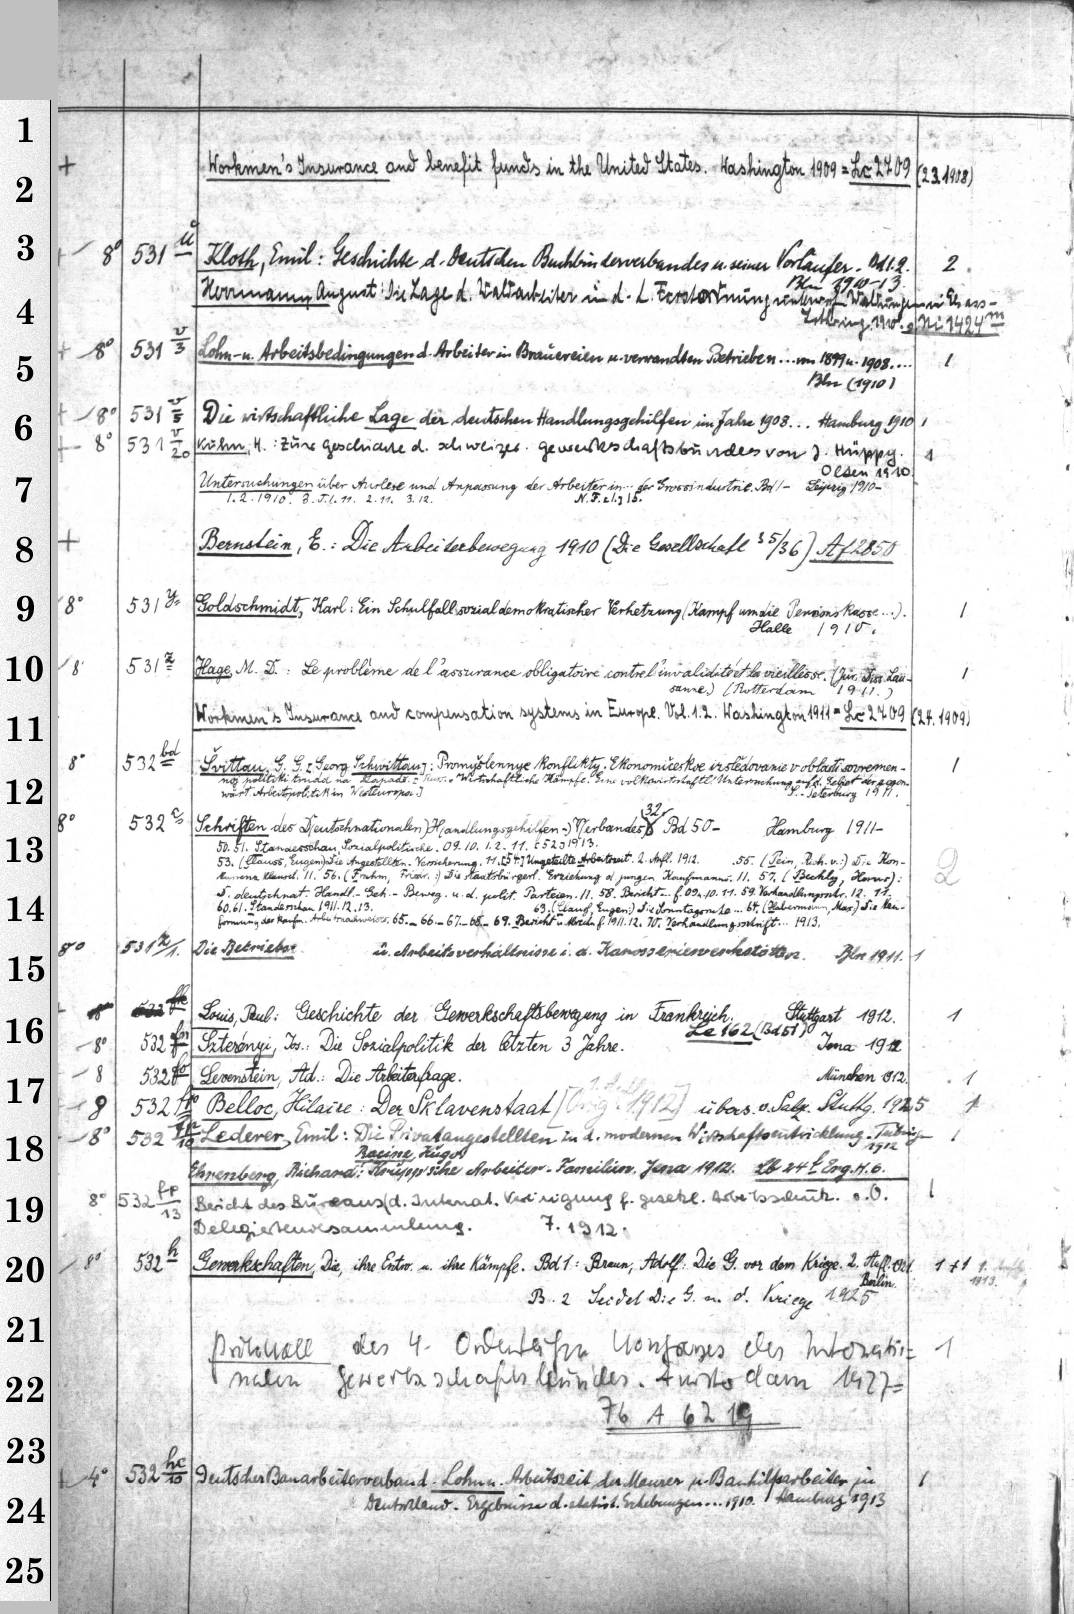 1
+ Workmen's Insurance and benefit funds in the United States. Washington 1909 = Lc 2709 (23.1908)
2
3
+ 8° 531 ü Kloth, Emil: Geschichte d. Deutschen Buchbinderverbandes u. seiner Vorläufer. Bd 1.2. 2
Bln 1910-13
4
Herrmann, August: Die Lage d. Waldarbeiter in d.
+ 8° 531 v/3 Lohn- u. Arbeitsbedingungen d. Arbeiter in Brauereien u. verwandten Betrieben ... von 1899 u. 1908.... 1
5
Bln (1910)
6
+ 8° 531 v/5 Die wirtschaftliche Lage der deutschen Handlungsgehilfen im Jahre 1908... Hamburg 1910 1
+ 8° 531 v/20 Kuhn, H.: Zur Geschichte d. schweizer. Gewerkschaftsbundes von J. Hüppy. 1
Olten 1910
7
Untersuchungen über Auslese und Anpassung der Arbeiter in ... der Grossindustrie. Bd 1- Leipzig 1910-
1.2.1910. 3. T. 1. 11. 2. 11. 3. 12.
8
+ Bernstein, E.: Die Arbeiterbewegung 1910 (Die Gesellschaft 35/36) Af 2850
9
8° 531 y Goldschmidt, Karl: Ein Schulfall sozialdemokratischer Verhetzung (Kampf um die Pensionskasse...). 1
Halle 1910.
10
8° 531 z Hage, M. D.: Le problème de l'assurance obligatoire contre l'invalidité et la vieillesse. (Jur. Diss. Lau- 1
sanne) (Rotterdam 1911.)
11
Workmen's Insurance and compensation systems in Europe. Vol. 1.2. Washington 1911 = Lc 2709 (24.1909)
8° 532 bd Švittau, G. G. [Georg Schwittau]: Promyšlennye Konflikty. Ekonomičeskoe izslědovanie v oblasti sovremen- 1
12
noj politiki truda na Zapadě. Wirtschaftliche Kämpfe. Eine volkswirtschaftl. Untersuchung auf d. Gebiet der gegen-
wärt. Arbeitspolitik in Westeuropa.] S.-Peterburg 1911.
8° 532 c Schriften des D(eutschnationalen) H(andlungsgehilfen-) Verbandes 32 Bd 50- Hamburg 1911-
13
50. 51. Standesschau, Sozialpolitische. 09. 10. 1.2. 11.
53. (Clauss, Eugen) Die Angestellten-Versicherung. 11. Ungeteilte Arbeitszeit. 2. Aufl. 1912. 55. (Pein, Rich. v.:) Die Kon- 2
kurrenz Klausel. 11. 56. (Frahm, Friedr.:) Die staatsbürgerl. Erziehung d. jungen Kaufmanns. 11. 57. (Bechly, Hans):
14
D. deutschnat. Handl.-Geh.-Beweg. u. d. polit. Parteien. 11. 58. Bericht f. 09. 10. 11. 59. Verhandlungsschr. 12. 11.
60. 61. Standesschau 1911. 12. 13. 63. Die Sonntagsruhe... 64. (Habermann, Max) Die
65. 66. 67. 68. 69. Bericht 1911. 12. 70. Verhandlungsschrift... 1913.
8° 531 z/1. Die Betriebs- u. Arbeitsverhältnisse i. d. Karosseriewerkstätten. Bln 1911. 1
15
+ 8° 532 Louis, Paul: Geschichte der Gewerkschaftsbewegung in Frankreich. Stuttgart 1912. 1
16
Le 162 (Bd 51)
8° 532 Szterényi, Jos.: Die Sozialpolitik der letzten 3 Jahre. Jena 1912
8 532 fo Levenstein, Ad.: Die Arbeiterfrage. München 1912. 1
17
8 532 Belloc, Hilaire: Der Sklavenstaat [Orig. 1912] übers. v. Salz. Stuttg. 1925 1
8° 532 Lederer, Emil: Die Privatangestellten in d. modernen Wirtschaftsentwicklung. Tübing- 1
1912
18
Racine, Hugo
Ehrenberg, Richard: Krupp'sche Arbeiter-Familien. Jena 1912. Lb 24 f Erg. H. 6.
19
8° 532 fp/13 Bericht des Bureaus (d. Internat. Vereinigung f. gesetzl. Arbeitsschutz. o. O. 1
Delegiertenversammlung. 7. 1912.
20
8° 532 h Gewerkschaften, Die, ihre Entw. u. ihre Kämpfe. Bd 1: Braun, Adolf: Die G. vor dem Kriege. 2. Aufl. 1+1
Berlin.
B. 2 Seidel Die G. n. d. Kriege 1925
21
Protokoll des 4. Ordentlichen Kongresses des Internatio= 1
22
nalen Gewerkschaftsbundes. Amsterdam 1927=
76 A 6219
23
+ 4° 532 hc/10 Deutscher Bauarbeiterverband. Lohn u. Arbeitszeit der Maurer u. Bauhilfsarbeiter in 1
24
Deutschland. Ergebnisse d. statist. Erhebungen ... 1910. Hamburg 1913
25